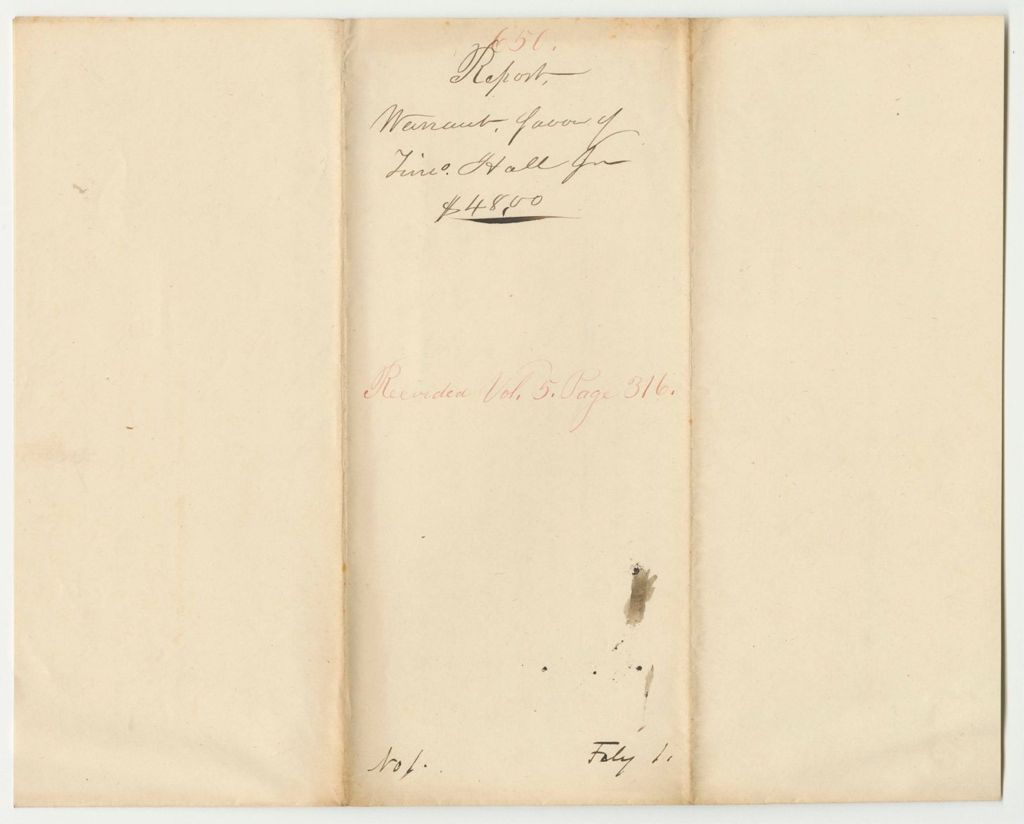 650.
Report,
Warrant, favor of
Timo. Hall for
$48.00
Recorded Vol. 5. Page 316.
No 1. Feby 1.